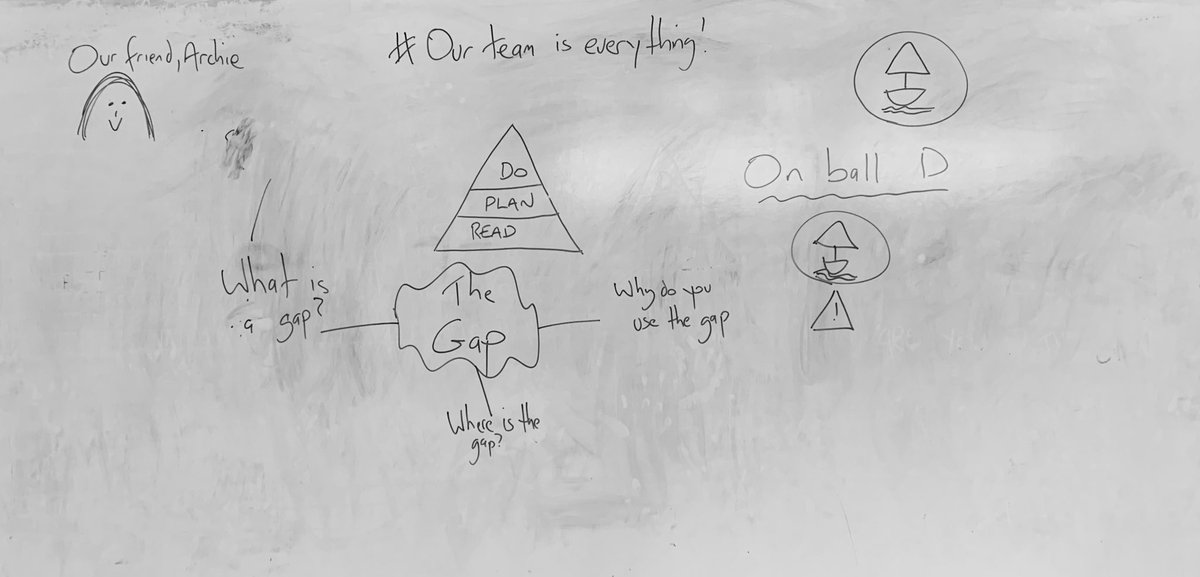 Our friend, Archie
# Our team is everything!
Do
PLAN
READ
On ball D
What is
a gap?
The
Gap
Why do you
use the gap
Where is the
gap?
!